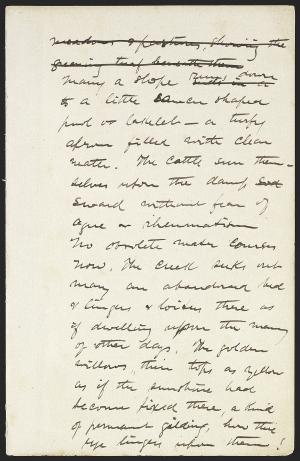 meadows & pastures, showing the
greening turf beneath them
Many a slope runs down
to a little saucer shaped
pool or lakelet — a turfy
apron filled with clear
water. The cattle sun them-
selves upon the damp sod
sward without fear of
ague or rheumatism
No obsolete water courses
now. The creek seeks out
many an abandoned bed
& lingers & loiters there as
if dwelling upon the memory
of other days. The golden
willows, their tops as yellow
as if the sunshine had
become fixed there, a kind
of permanent gilding, how the
eye lingers upon them!